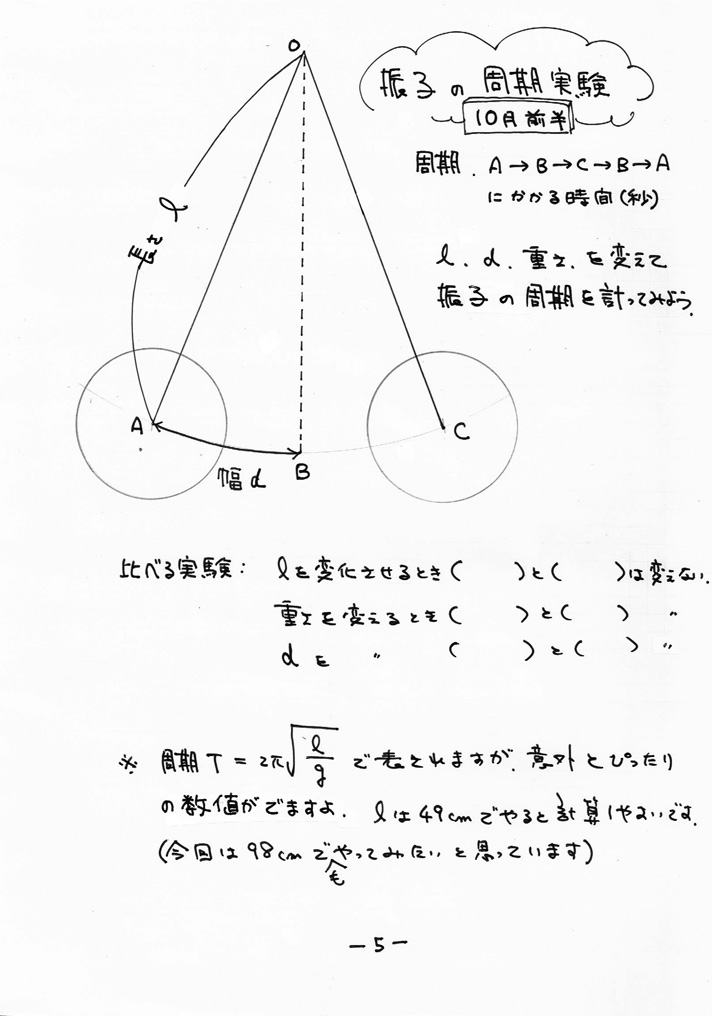 振子の周期実験
10月前半
周期. A→B→C→B→A
にかかる時間(秒)
l、d、重さ、を変えて
振子の周期を計ってみよう。
O
長さ l
A
B
C
幅d
比べる実験: lを変化させるとき( )と( )は変えない。
重さを変えるとき( )と( ) 〃
dを 〃 ( )と( ) 〃
※ 周期T=2π√l/g で表されますが、意外とぴったり
の数値がでますよ. lは49cmでやると計算しやすいです。
(今回は98cmでもやってみたいと思っています)
-5-